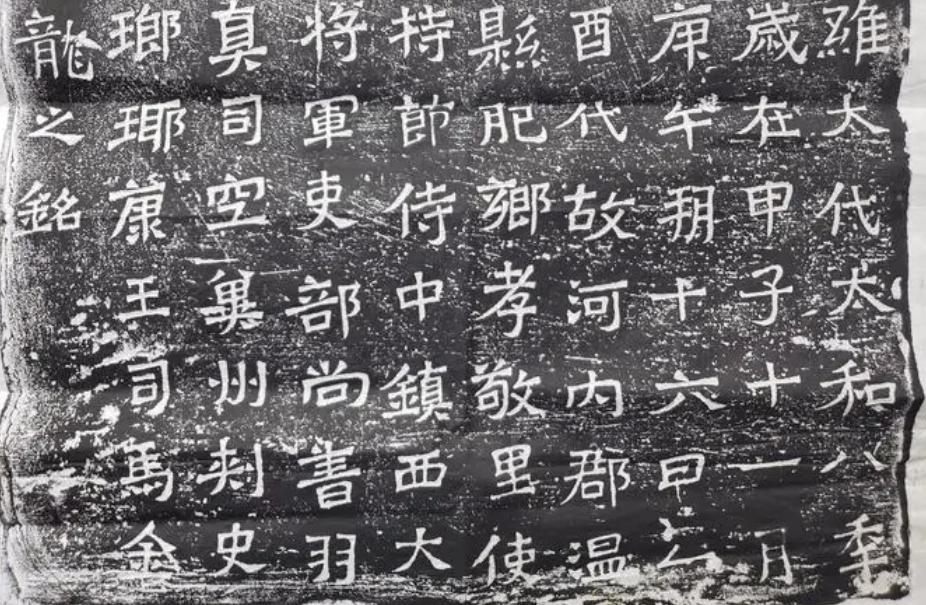 維大代大和八年
歲在甲子十一月
庚午朔十六日乙
酉代故河内郡温
縣肥鄉孝敬里使
持節侍中鎮西大
將軍吏部尚書羽
真司空冀州刺史
瑯琊康王司馬金
龍之銘